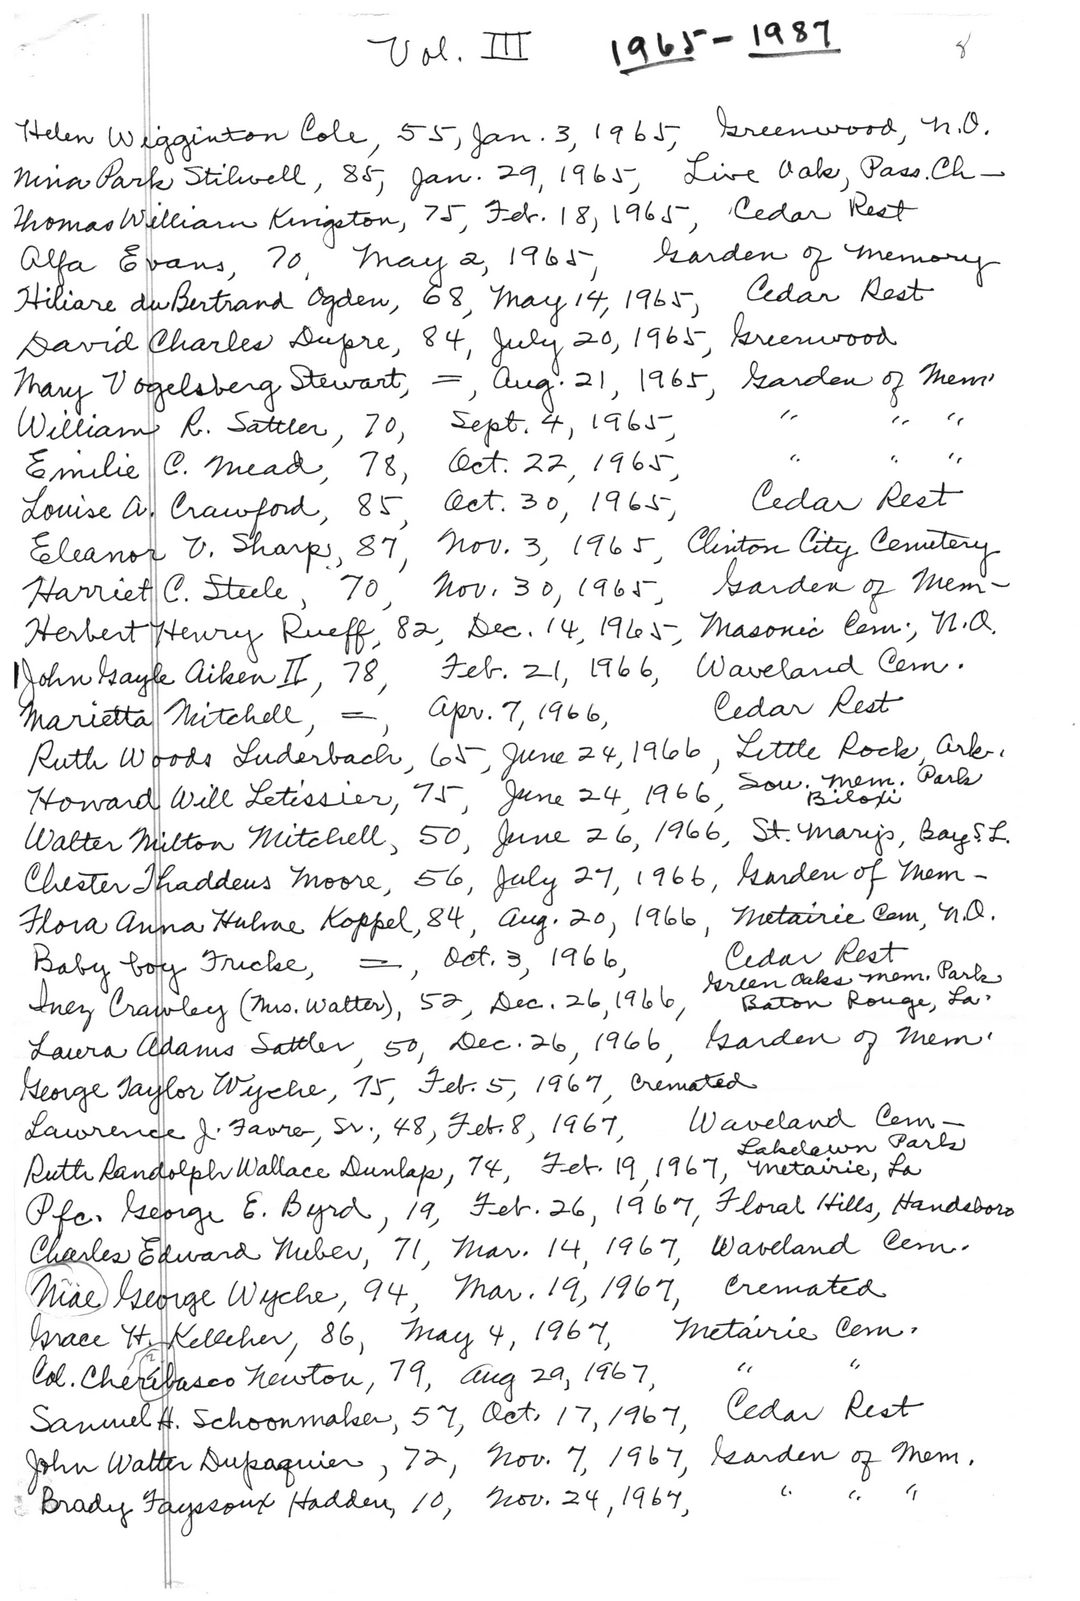 Vol. III 1965-1987 8
Helen Wigginton Cole, 55, Jan. 3, 1965, Greenwood, N.O.
Nina Park Stilwell, 85, Jan. 29, 1965, Live Oak, Pass. Ch-
Thomas William Kingston, 75, Feb. 18, 1965, Cedar Rest
Alfa Evans, 70, May 2, 1965, Garden of Memory
Hiliare du Bertrand Ogden, 68, May 14, 1965, Cedar Rest
David Charles Dupre, 84, July 20, 1965, Greenwood
Mary Vogelsberg Stewart, =, Aug. 21, 1965, Garden of Mem.
William R. Sattler, 70, Sept. 4, 1965, " " "
Emilie C. Mead, 78, Oct. 22, 1965, " " "
Louise A. Crawford, 85, Oct. 30, 1965, Cedar Rest
Eleanor V. Sharp, 87, Nov. 3, 1965, Clinton City Cemetery
Harriet C. Steele, 70, Nov. 30, 1965, Garden of Mem-
Herbert Henry Rueff, 82, Dec. 14, 1965, Masonic Cem., N.O.
John Gayle Aiken II, 78, Feb. 21, 1966, Waveland Cem.
Marietta Mitchell, =, Apr. 7, 1966, Cedar Rest
Ruth Woods Luderbach, 65, June 24, 1966, Little Rock, Ark.
Howard Will Letissier, 75, June 24, 1966, Sou. Mem. Park
Biloxi
Walter Milton Mitchell, 50, June 26, 1966, St. Mary's, Bay S. L.
Chester Thaddeus Moore, 56, July 27, 1966, Garden of Mem-
Flora Anna Hulme Koppel, 84, Aug. 20, 1966, Metairie Cem, N.O.
Baby boy Fricke, =, Oct. 3, 1966, Cedar Rest
Green Oaks Mem. Park
Inez Crawley (Mrs. Walter), 52, Dec. 26, 1966, Baton Rouge, La.
Laura Adams Sattler, 50, Dec. 26, 1966, Garden of Mem.
George Taylor Wyche, 75, Feb. 5, 1967, cremated
Lawrence J. Favre, Sr., 48, Feb. 8, 1967, Waveland Cem-
Lakelawn Park
Ruth Randolph Wallace Dunlap, 74, Feb. 19, 1967, Metairie, La
Pfc. George E. Byrd, 19, Feb. 26, 1967, Floral Hills, Handsboro
Charles Edward Nuber, 71, Mar. 14, 1967, Waveland Cem.
George Wyche, 94, Mar. 19, 1967, cremated
Grace H. Kelleher, 86, May 4, 1967, Metairie Cem.
Col. Newton, 79, Aug 29, 1967, " "
Samuel H. Schoonmaker, 57, Oct. 17, 1967, Cedar Rest
John Walter Dupaquier, 72, Nov. 7, 1967, Garden of Mem.
Brady Fayssoux Hadden, 10, Nov. 24, 1967, " " "